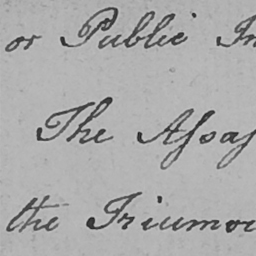 or Public In
The Assay
the Triumvi